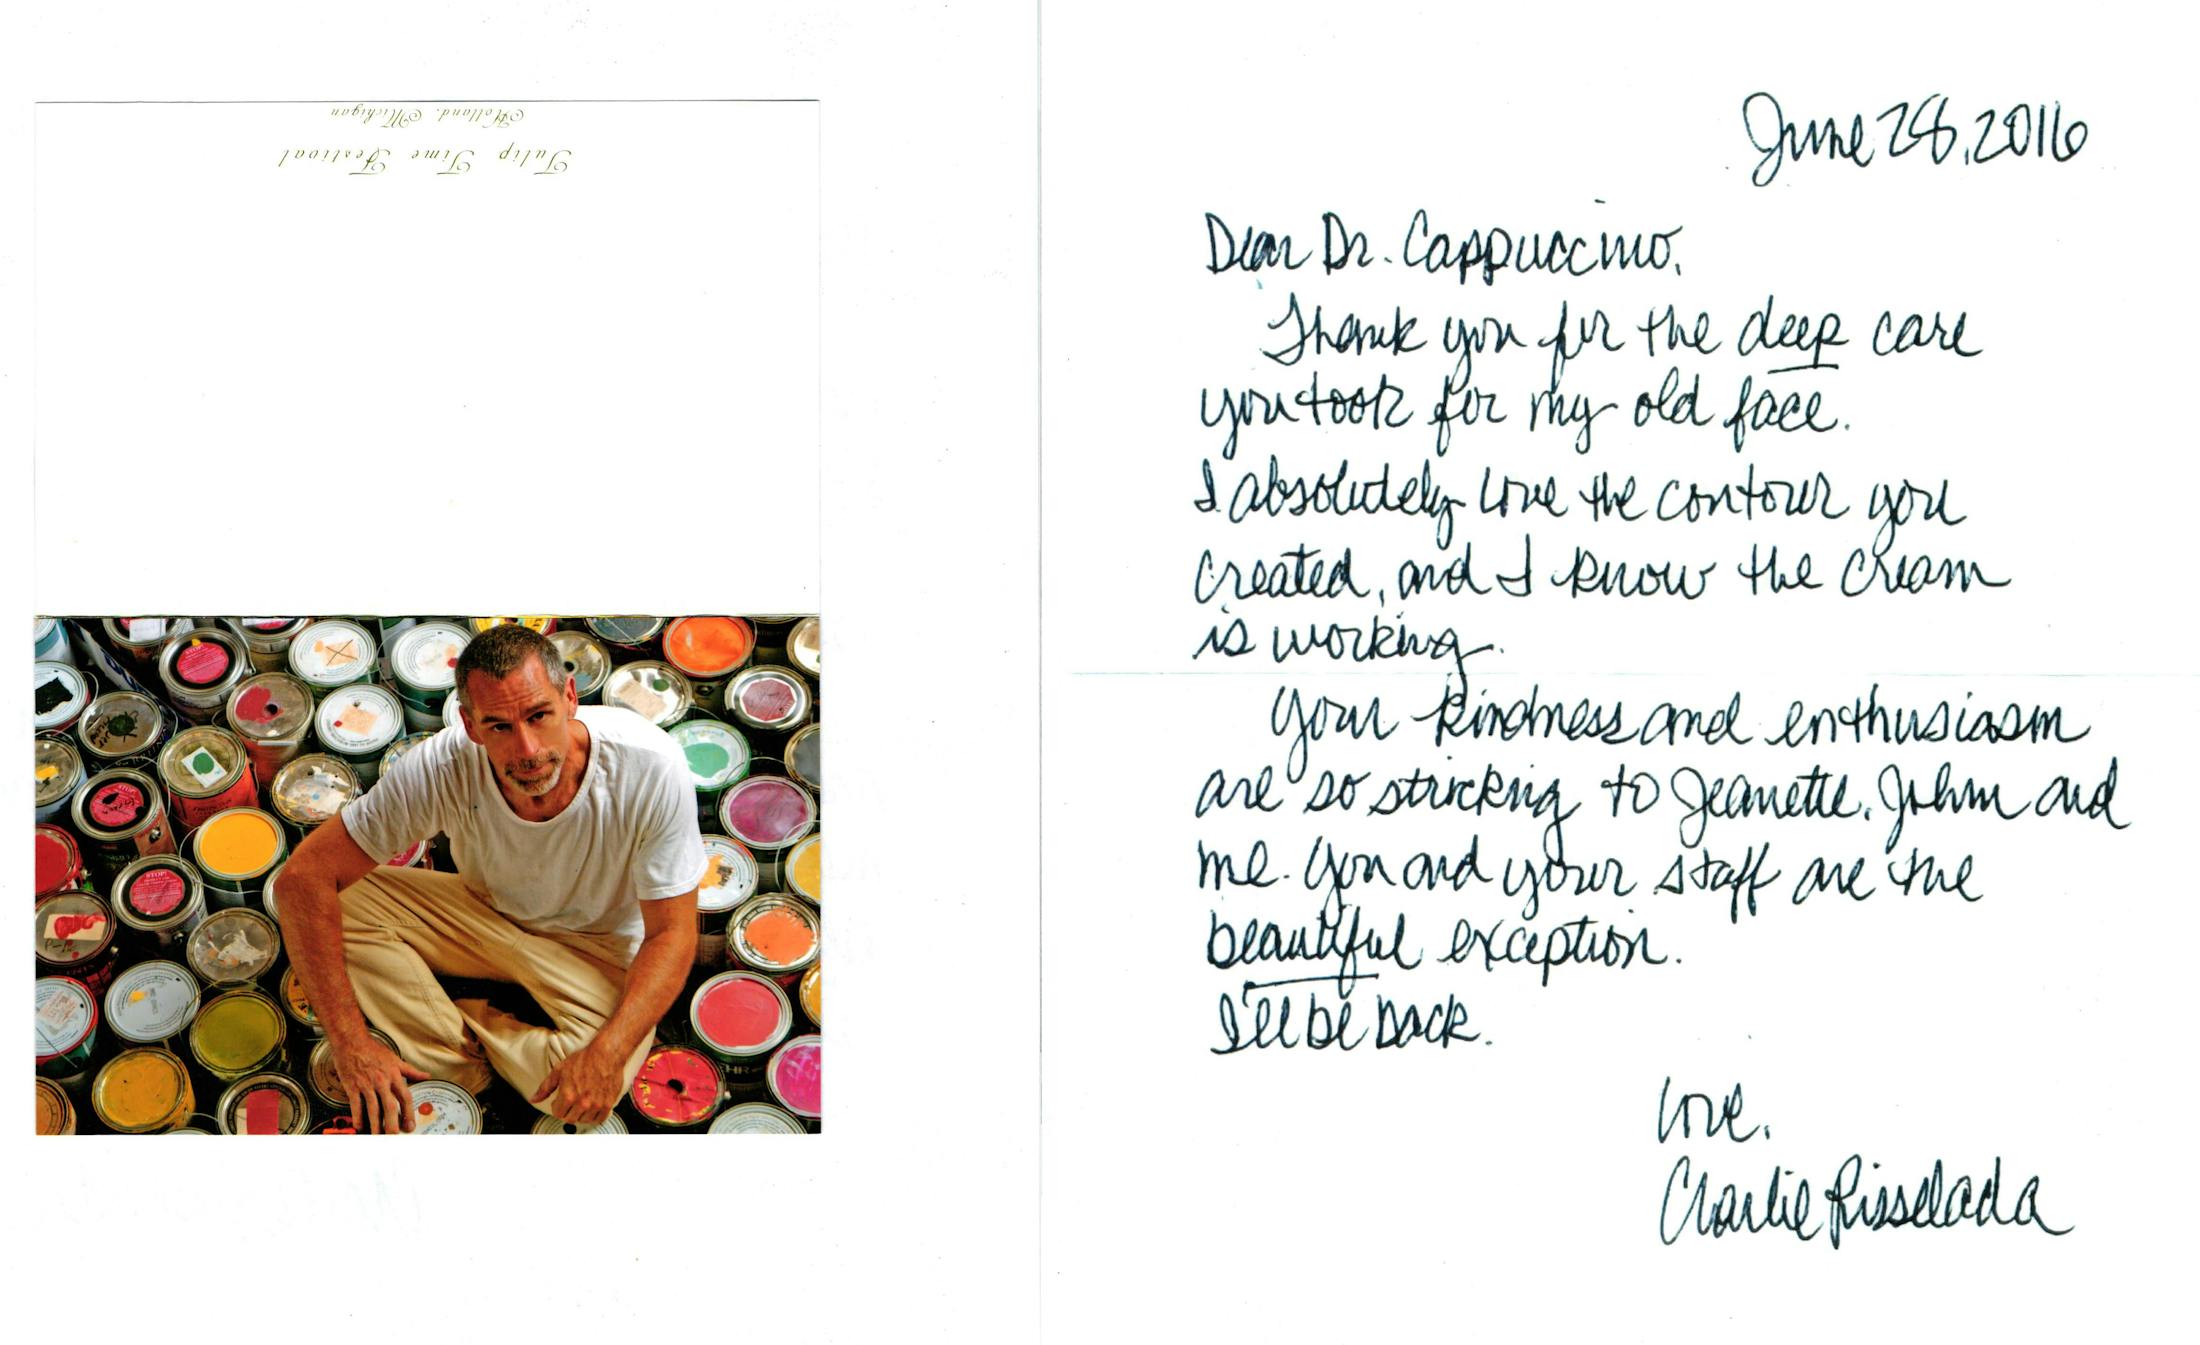 Tulip Time Festival
Holland, Michigan
June 28, 2016
Dear Dr. Cappuccino,
Thank you for the deep care
you took for my old face.
I absolutely love the contour you
created, and I know the cream
is working.
Your kindness and enthusiasm
are so stricking to Jeanette, John and
me. You and your staff are the
beautiful exception.
I'll be back.
Love,
Charlie Risselada
STOP!
STOP!